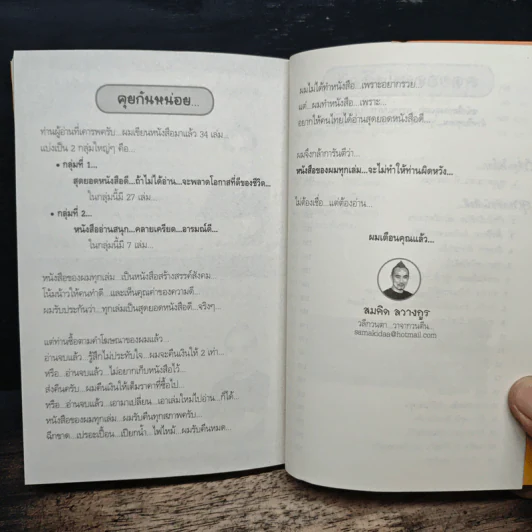 คุยกันหน่อย...
ท่านผู้อ่านที่เคารพครับ...ผมเขียนหนังสือมาแล้ว 34 เล่ม...
แบ่งเป็น 2 กลุ่มใหญ่ๆ คือ...
• กลุ่มที่ 1...
สุดยอดหนังสือดี...ถ้าไม่ได้อ่าน...จะพลาดโอกาสที่ดีของชีวิต...
ในกลุ่มนี้มี 27 เล่ม...
• กลุ่มที่ 2...
หนังสืออ่านสนุก...คลายเครียด...อารมณ์ดี...
ในกลุ่มนี้มี 7 เล่ม...
หนังสือของผมทุกเล่ม...เป็นหนังสือสร้างสรรค์สังคม...
โน้มน้าวให้คนทำดี...และเห็นคุณค่าของความดี...
ผมรับประกันว่า...ทุกเล่มเป็นสุดยอดหนังสือดี...จริงๆ...
แต่ท่านซื้อตามคำโฆษณาของผมแล้ว...
อ่านจบแล้ว...รู้สึกไม่ประทับใจ...ผมจะคืนเงินให้ 2 เท่า...
หรือ...อ่านจบแล้ว...ไม่อยากเก็บหนังสือไว้...
ส่งคืนครับ...ผมคืนเงินให้เต็มราคาที่ซื้อไป...
หรือ...อ่านจบแล้ว...เอามาเปลี่ยน...เอาเล่มใหม่ไปอ่าน...ก็ได้...
หนังสือของผมทุกเล่ม...ผมรับคืนทุกสภาพครับ...
ฉีกขาด...เปรอะเปื้อน...เปียกน้ำ...ไฟไหม้...ผมรับคืนหมด...
ผมไม่ได้ทำหนังสือ...เพราะอยากรวย...
แต่...ผมทำหนังสือ...เพราะ...
อยากให้คนไทยได้อ่านสุดยอดหนังสือดี...
ผมจึงกล้าการันตีว่า...
หนังสือของผมทุกเล่ม...จะไม่ทำให้ท่านผิดหวัง...
ไม่ต้องเชื่อ...แต่ต้องอ่าน...
ผมเตือนคุณแล้ว...
สมคิด ลวางกูร
วลีกวนตา...วาจากวนตีน...
samakidaa@hotmail.com